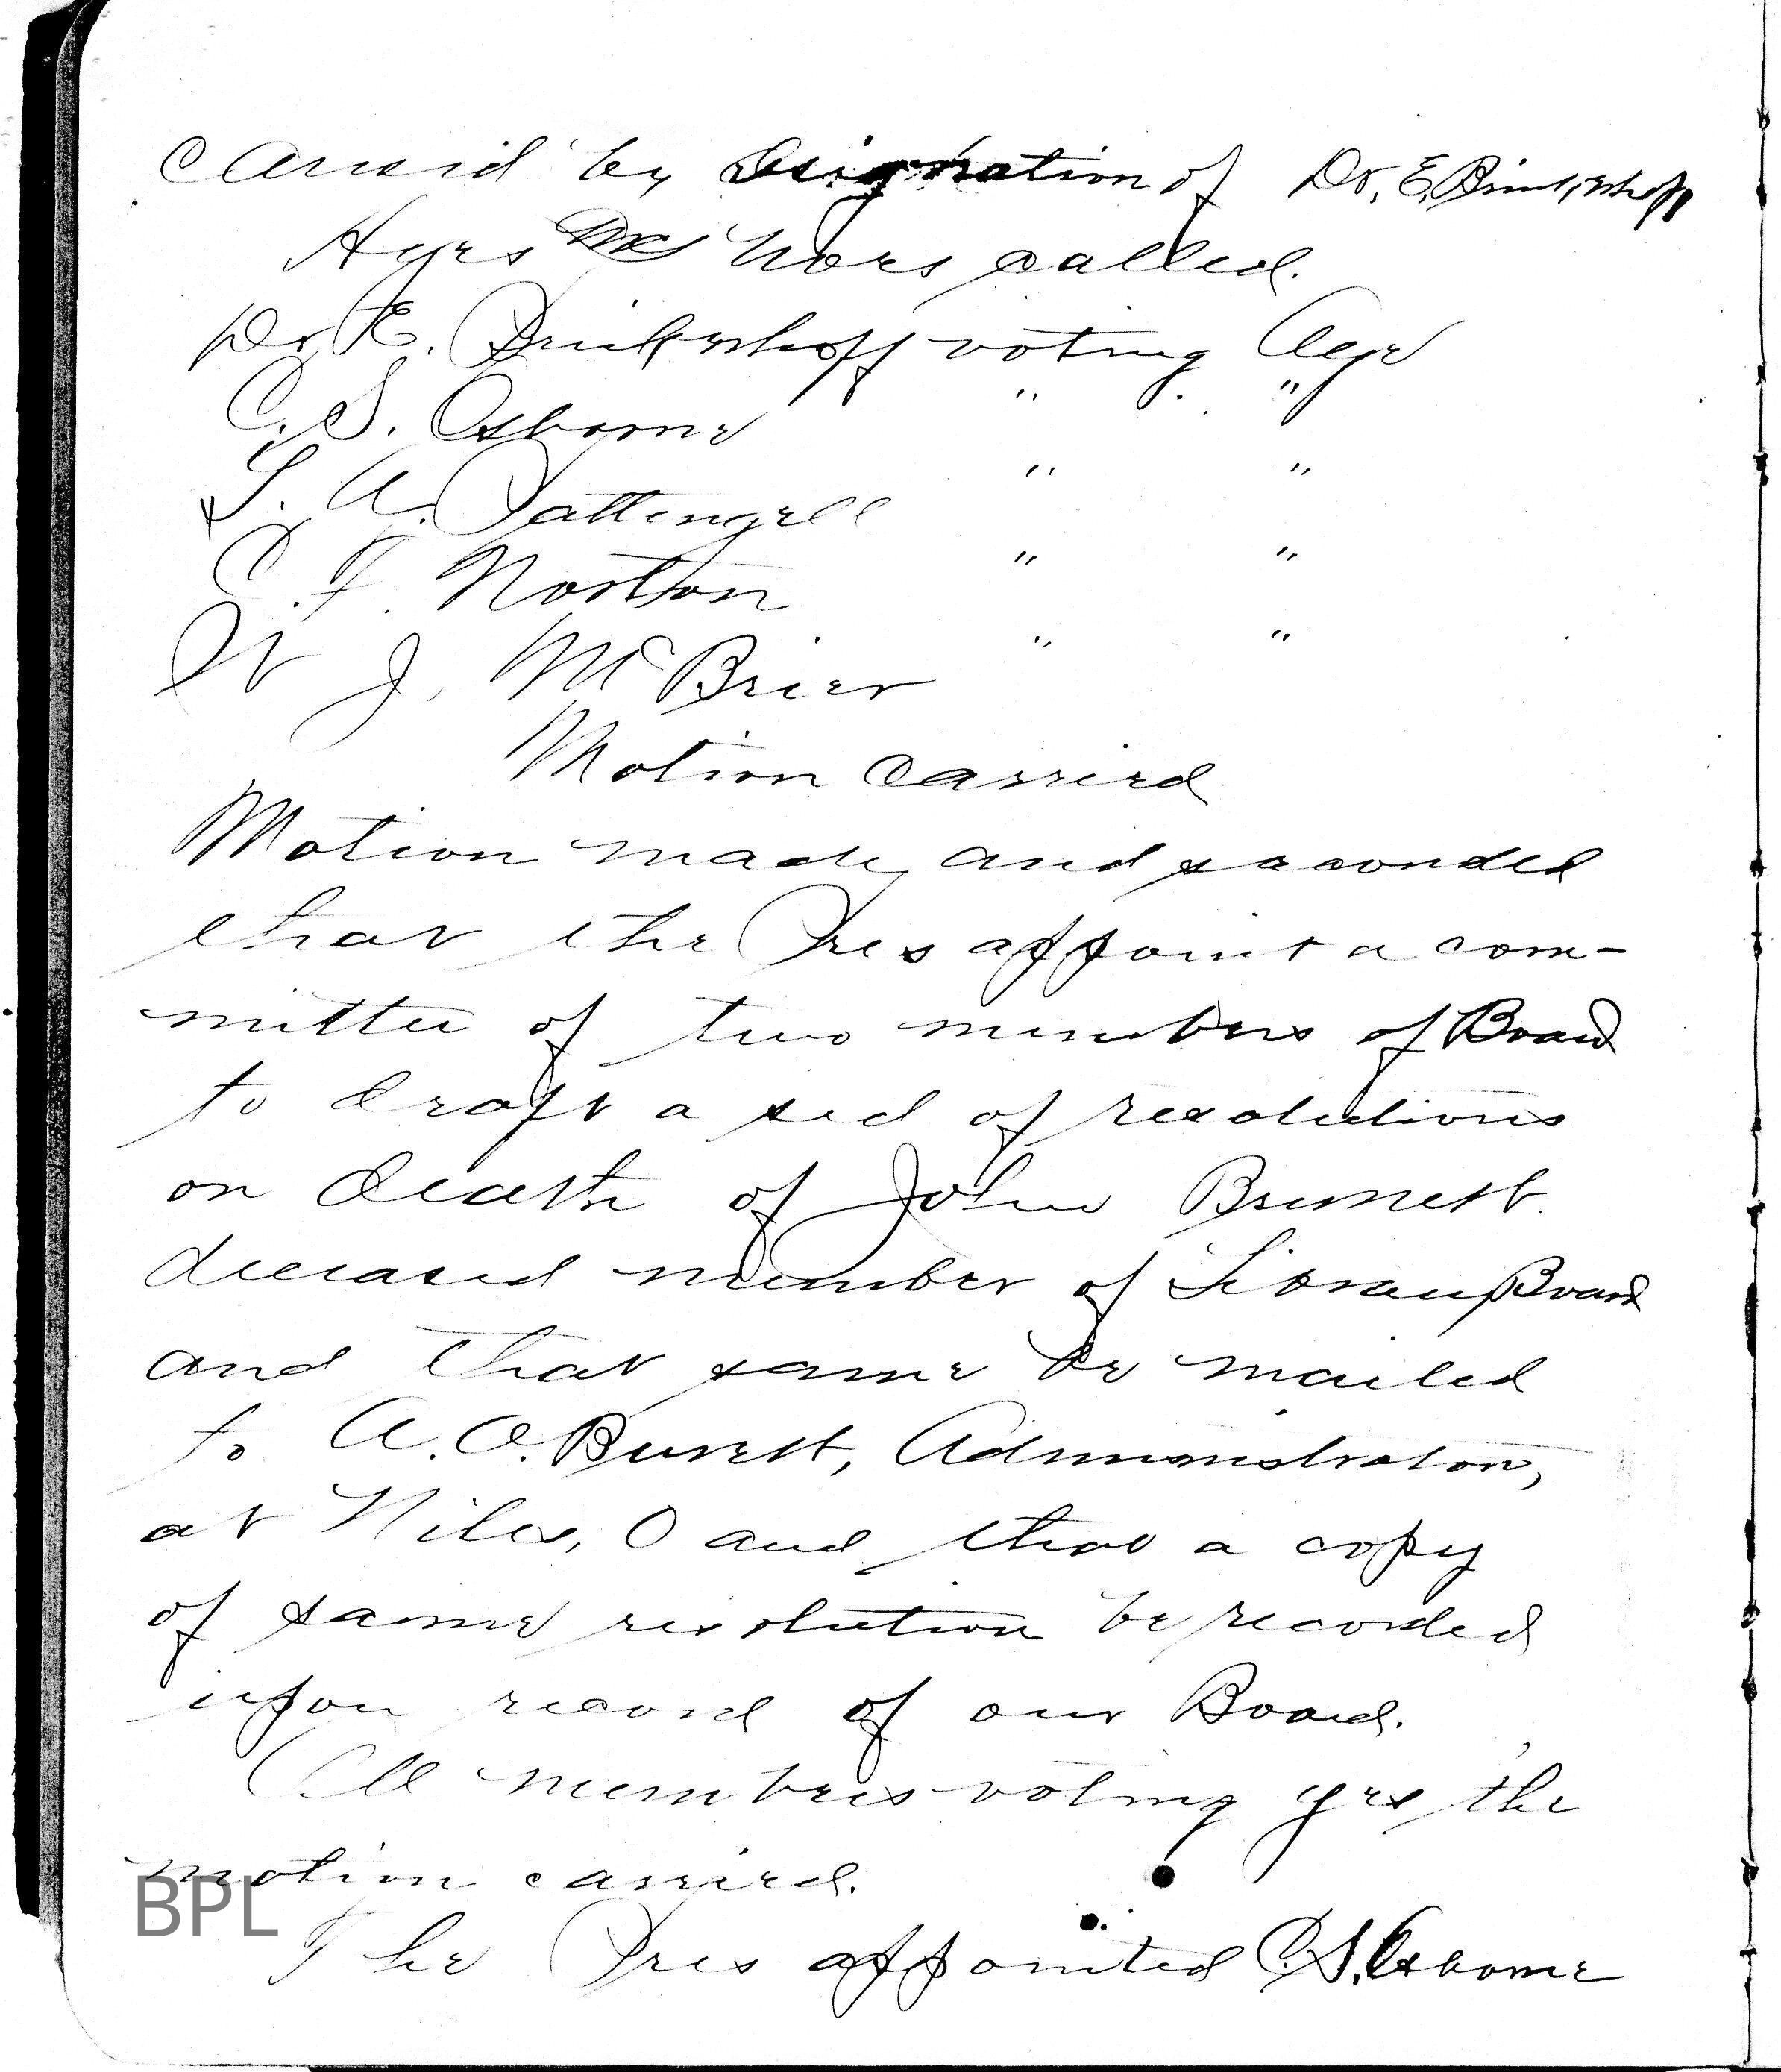 caused by resignation of Dr. E. Brinkerhoff
Ayes & Noes called.
Dr. E. Brinkerhoff voting Aye
C. S. Osborne " "
L. A. Pattengell " "
C. F. Norton " "
W J. McBrier " "
Motion Carried
Motion made and seconded
that the Pres appoint a com-
mittee of two members of Board
to draft a sed of resolutions
on death of John
deceased member of Library Board
and that same be mailed
to A. O. Administrator,
at Niles, O and that a copy
of same resolution be recorded
upon record of our Board.
All members voting yes the
motion carried.
The Pres appointed C. S. Osborne
BPL